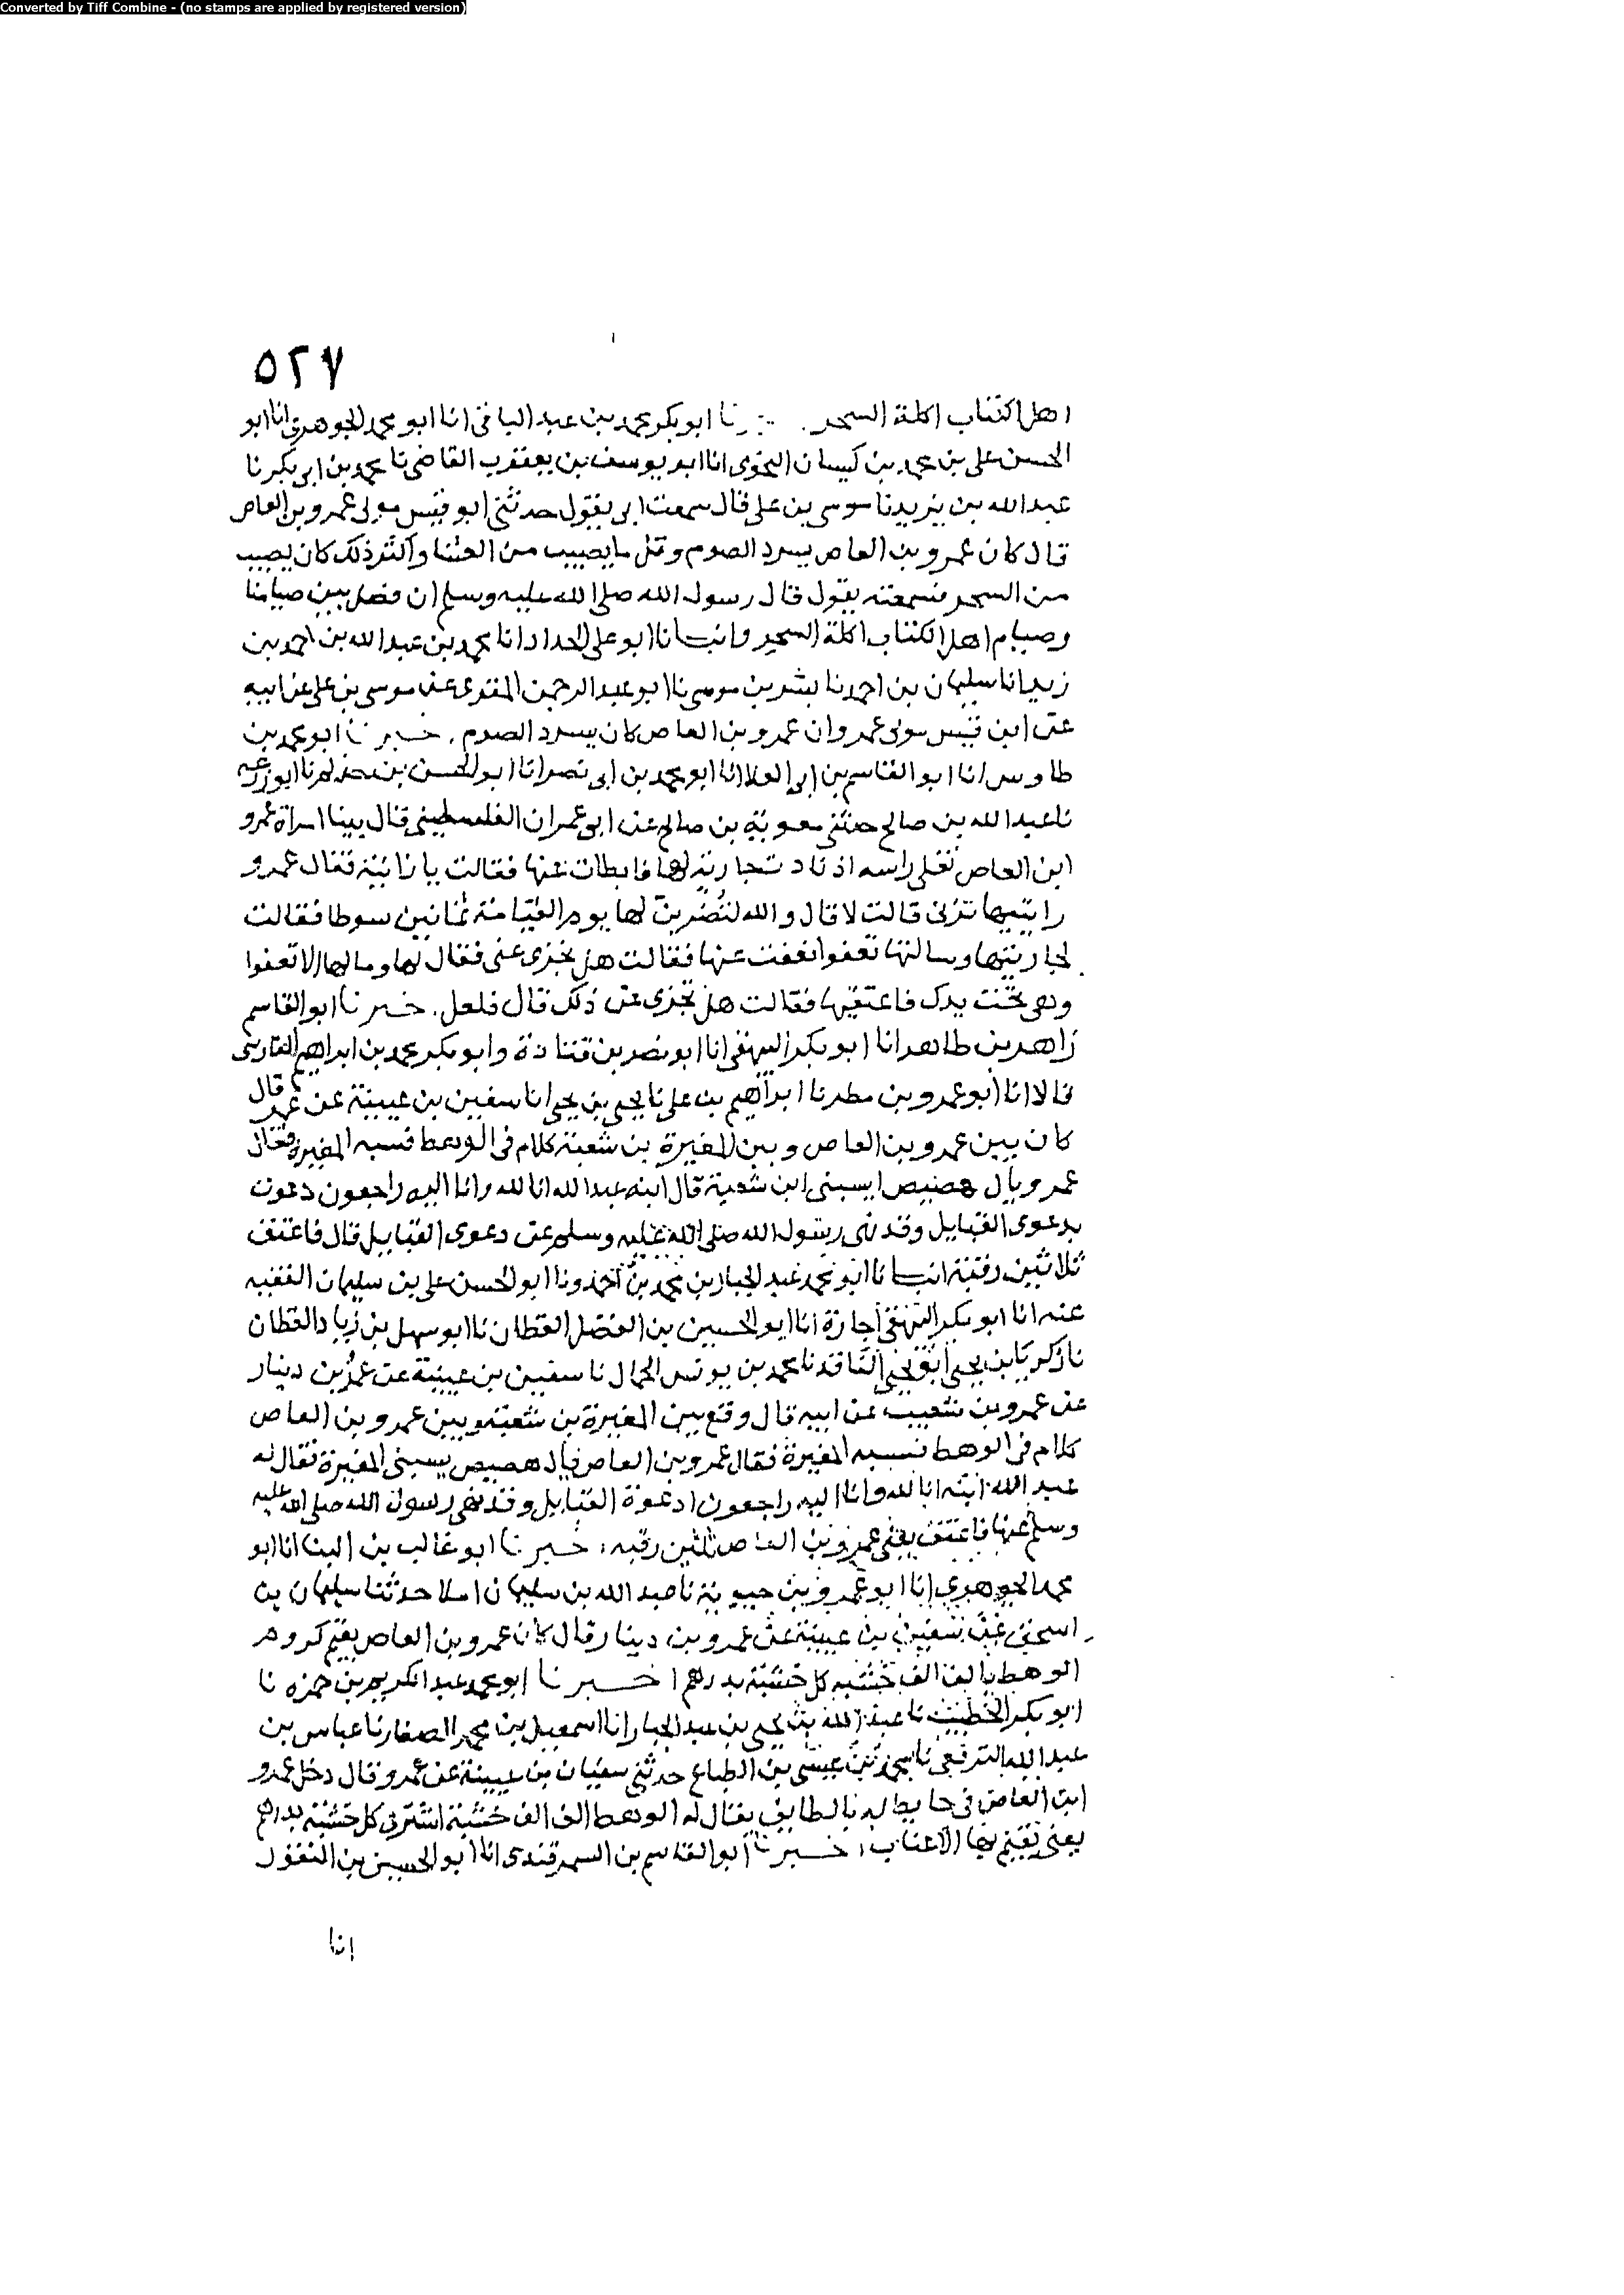 Converted by Tiff Combine - (no stamps are applied by registered version)
٥٢٧
اهل الكتاب اكلة السحر . نا ابو بكر محمد بن عبد الباقى انا ابو محمد الجوهرى انا ابو
الحسن على بن محمد بن كيسان النحوى انا ابو يوسف بن يعقوب القاضى نا محمد بن ابى بكر نا
عبد الله بن يزيد نا موسى بن على قال سمعت ابى يقول حدثنى ابو قيس مولى عمرو بن العاص
قال كان عمرو بن العاص يسرد الصوم وقل ما يصيب من العشا واكثر ذلك كان يصيب
من السحر فسمعته يقول قال رسول الله صلى الله عليه وسلم ان فصل بين صيامنا
وصيام اهل الكتاب اكلة السحر وانبانا ابو على الحداد انا محمد بن عبد الله بن احمد بن
زيد انا سليمان بن احمد نا بشر بن موسى نا ابو عبد الرحمن المقرى عن موسى بن على عن ابيه
عن ابن قيس مولى عمرو ان عمرو بن العاص كان يسرد الصوم . خبرنا ابو محمد بن
طاوس انا ابو القاسم بن ابى العلا انا ابو محمد بن ابى نصر انا ابو الحسن بن حذلم نا ابو زرعه
نا عبد الله بن صالح حدثنى معوية بن صالح عن ابى عمران الفلسطينى قال بينا امراة عمرو
ابن العاص تفلى راسه اذ نادت جارية لها فابطات عنها فقالت يا زانية فقال عمرو
رايتيها تزنى قالت لا قال والله لتضربن لها يوم القيامة ثمانين سوطا فقالت
لجاريتها وسالتها تعفوا فعفت عنها فقالت هل يجزى عنى فقال لها وما لها الا تعفوا
وهى تحت يدك فاعتقيها فقالت هل تجزى عن ذلك قال فلعل . خبرنا ابو القاسم
زاهر بن طاهر انا ابو بكر البيهقى انا ابو نصر بن قتادة وابو بكر محمد بن ابراهيم الفارسى
قالا انا ابو عمرو بن مطر نا ابراهيم بن على نا يحيى بن يحيى انا سفين بن عيينة عن عمرو قال
كان بين عمرو بن العاص وبين المغيرة بن شعبة كلام فى الوهط فسبه المغيرة فقال
عمرو يال هصيص ايسبنى ابن شعبة قال ابنه عبد الله انا لله وانا اليه راجعون دعوت
بدعوى القبايل وقد نهى رسول الله صلى الله عليه وسلم عن دعوى القبايل قال فاعتق
ثلاثين رقبة انبانا ابو محمد عبد الجبار بن محمد بن احمد ونا ابو الحسن على بن سليمان الفقيه
عنه انا ابو بكر البيهقى اجازة انا ابو الحسين بن الفضل القطان نا ابو سهل بن زياد القطان
نا زكريا بن يحيى ابو يحيى الناقد نا محمد بن يونس الجمال نا سفين بن عيينة عن عمرو بن دينار
عن عمرو بن شعيب عن ابيه قال وقع بين المغيرة بن شعبة وبين عمرو بن العاص
كلام فى الوهط فسبه المغيرة فقال عمرو بن العاص يال هصيص يسبنى المغيرة فقال له
عبد الله ابنه انا لله وانا اليه راجعون ادعوة القبايل وقد نهى رسول الله صلى الله عليه
وسلم عنها فاعتق يعنى عمرو بن العاص ثلثين رقبه . خبرنا ابو غالب بن البنا انا ابو
محمد الجوهرى انا ابو عمرو بن حيوية نا عبد الله بن سليمان املا حدثنا سليمان بن
اسحق عن سفين بن عيينة عن عمرو بن دينار قال كان عمرو بن العاص يقيم كروم
الوهط بالف الف خشبه كل خشبة بدرهم اخبرنا ابو محمد عبد الكريم بن حمزه نا
ابو بكر الخطيب نا عبد الله بن يحيى بن عبد الجبار انا اسمعيل بن محمد الصفار نا عباس بن
عبد الله الترقفى نا محمد بن عيسى بن الطباع حدثنى سفيان بن عيينة عن عمرو قال دخل عمرو
ابن العاص فى حايط له بالطايف يقال له الوهط الف الف خشبة اشترى كل خشبة بدرهم
يعنى يقيم بها الاعناب . خبرنا ابو القاسم بن السمرقندى انا ابو الحسين بن النقور
انا